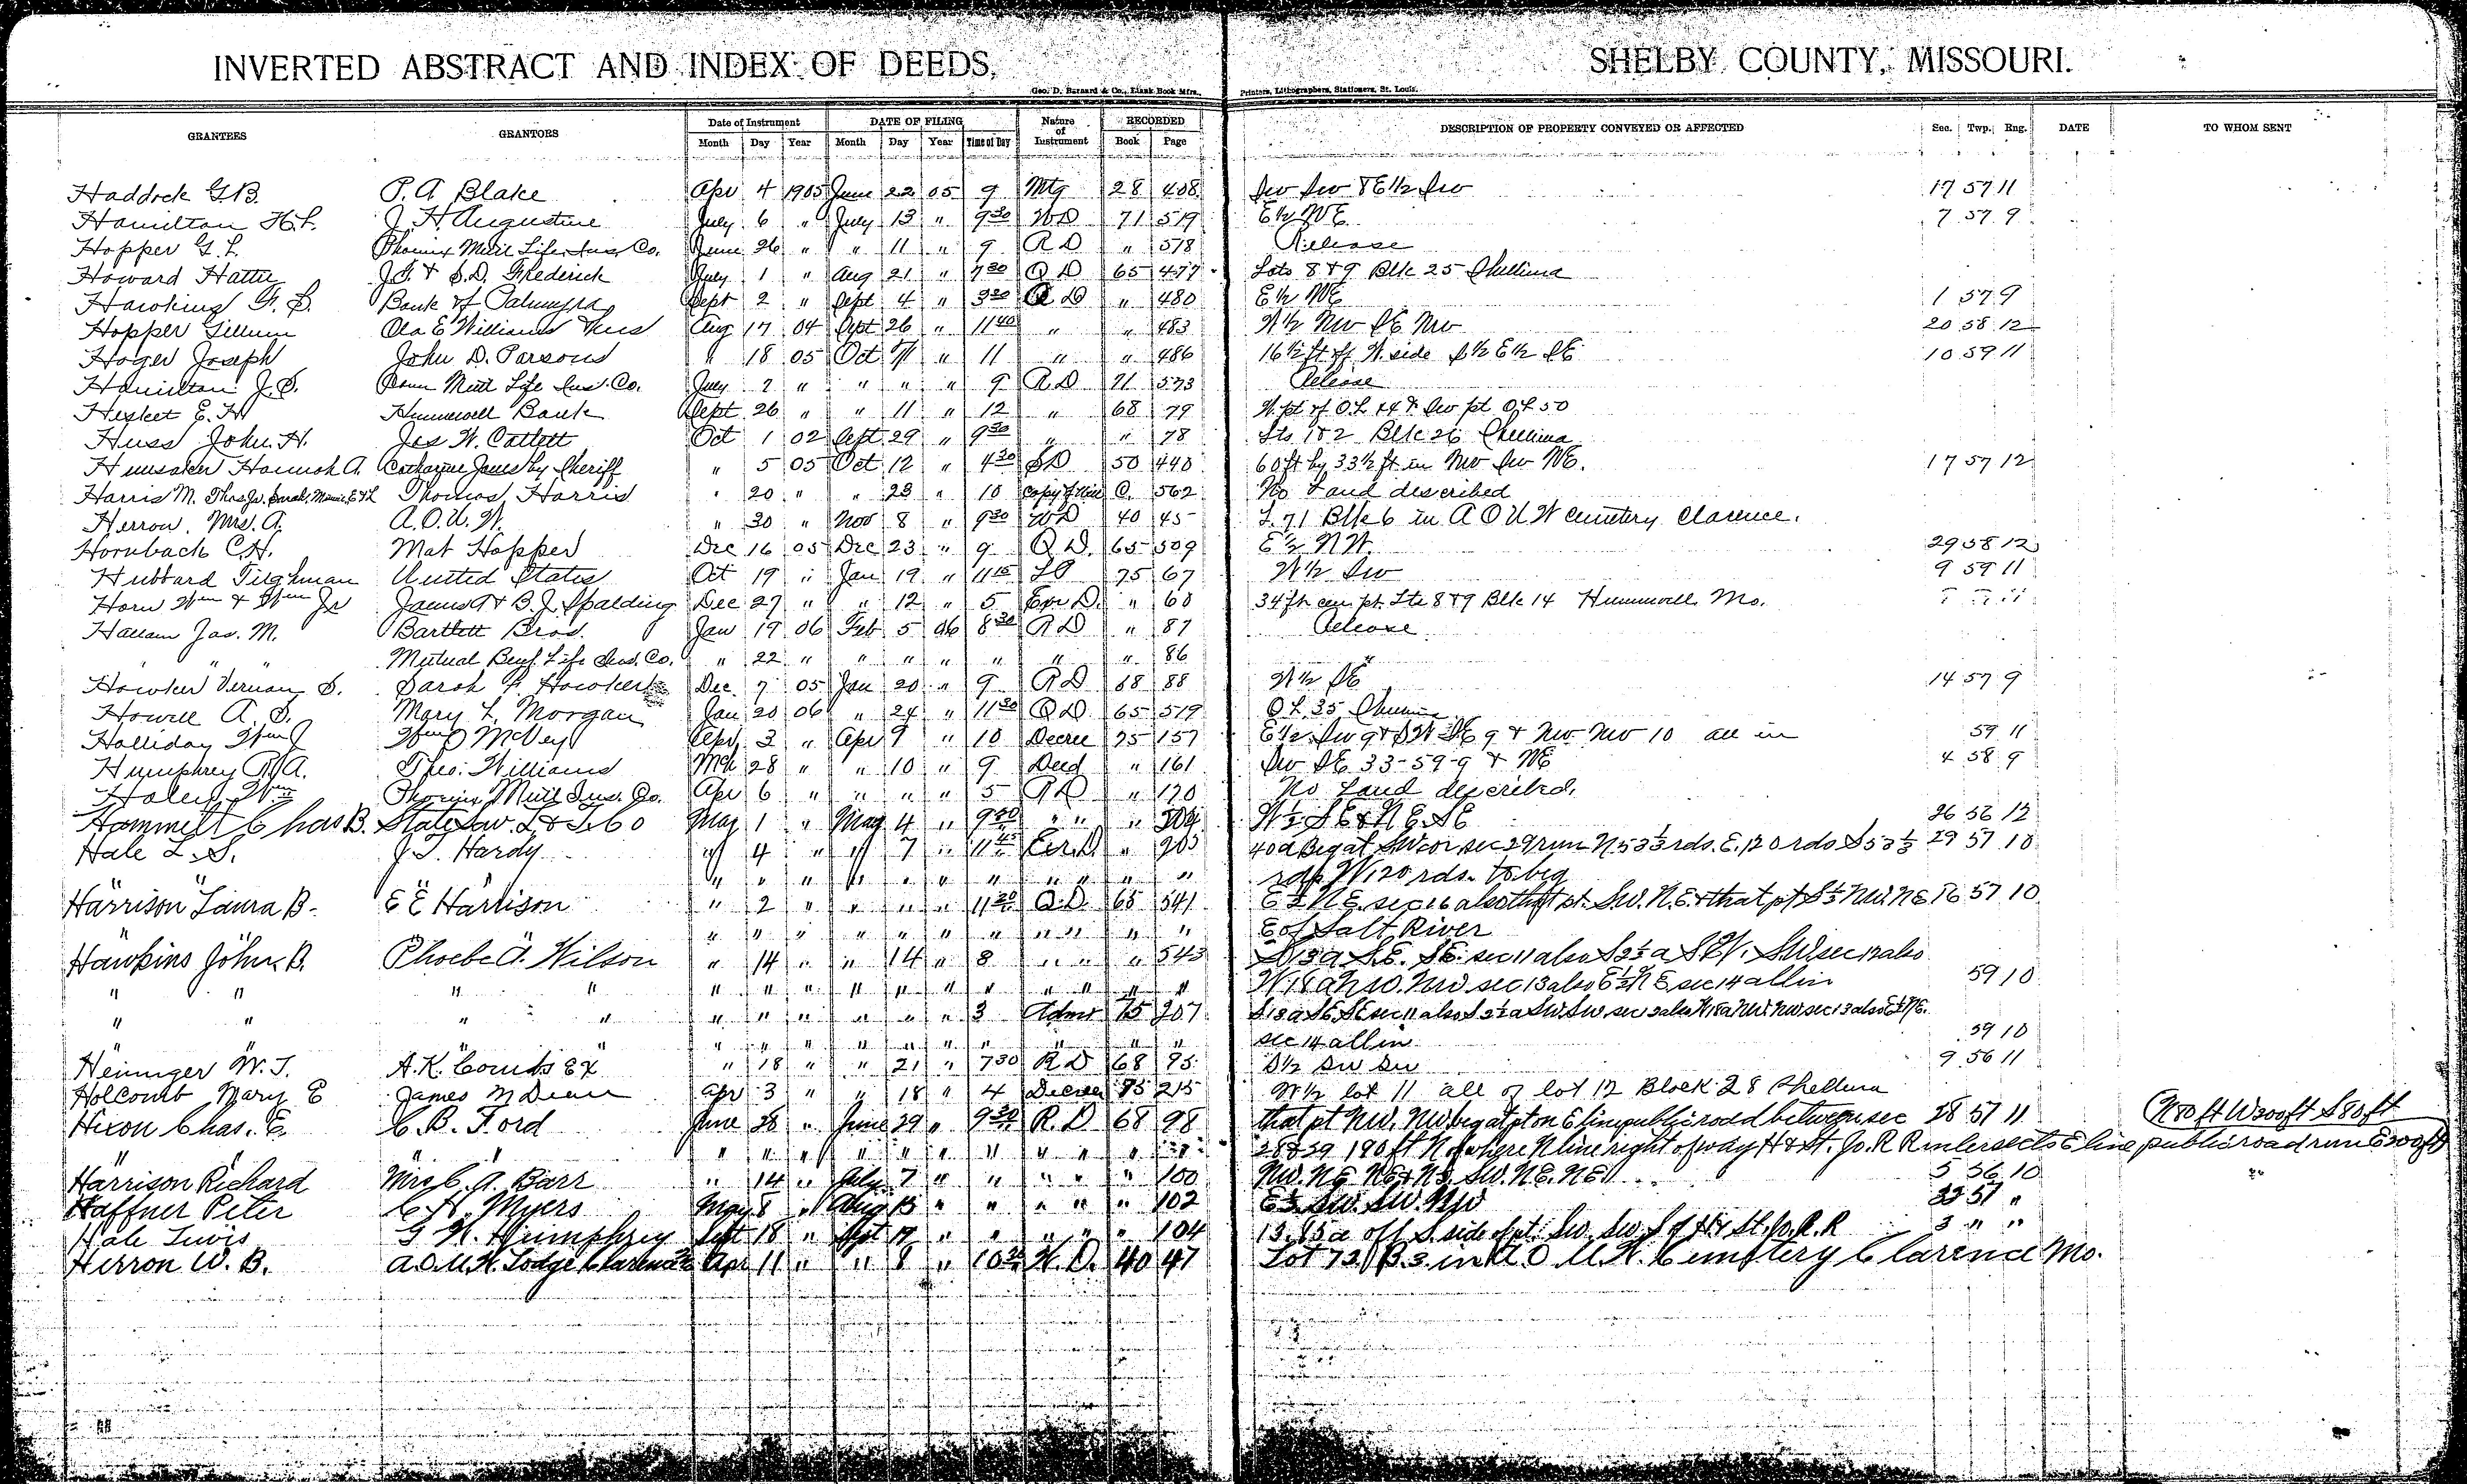 INVERTED ABSTRACT AND INDEX OF DEEDS, SHELBY COUNTY, MISSOURI.
Geo. D. Barnard & Co., Blank Book Mfrs., Printers, Lithographers, Stationers, St. Louis.
GRANTEES GRANTORS Date of Instrument DATE OF FILING Nature of Instrument RECORDED DESCRIPTION OF PROPERTY CONVEYED OR AFFECTED Sec. Twp. Rng. DATE TO WHOM SENT
Month Day Year Month Day Year Time of Day Book Page
Haddock G.B. P. A Blake Apr 4 1905 June 22 05 9 Mtg 28 408 Sw Sw & E 1/2 Sw 17 57 11
Hamilton H.L. J. H Augustine July 6 " July 13 " 9 30 WD 71 519 E 1/2 NE 7 57 9
Hopper G. L. Phoenix Mutl Life Ins. Co. June 26 " " 11 " 9 R D " 578 Release
Howard Hattie J.G. & S.D. Frederick July 1 " Aug 21 " 7 30 Q D 65 477 Lots 8 & 9 Blk 25 Shelbina
Hawkins G. S. Bank of Palmyra Sept 2 " Sept 4 " 3 30 Q D " 480 E 1/2 NE 1 57 9
Hopper Gillum Ola E Williams & hus Aug 17 04 Sept 26 " 11 40 " " 483 W 1/2 Nw SE Nw 20 58 12
Hager Joseph John D. Parsons " 18 05 Oct 7 " 11 " " 486 16 1/2 ft off W. side S 1/2 E 1/2 SE 10 59 11
Hamilton J.S. Conn Mutl Life Ins. Co. July 7 " " " " 9 R D 71 573 Release
Hesket E. H Hunnewell Bank Sept 26 " " 11 " 12 " 68 79 W. pt of O.L 44 & Sw pt O.L 50
Huss John H. Jas W. Catlett Oct 1 02 Sept 29 " 9 30 " " 78 Lts 1 & 2 Blk 26 Shelbina
Hunsaker Hannah A. Catharine Jones by Sheriff " 5 05 Oct 12 " 4 30 SD 50 440 60 ft by 33 1/2 ft in Nw Sw NE. 17 57 12
Harris M. Thos Jr. Sarah, Minnie, E & L Thomas Harris " 20 " " 23 " 10 copy of Will C. 562 No Land described
Herron. Mrs. A. A.O.U.W. " 30 " Nov 8 " 9 30 WD 40 45 L. 71 Blk 6 in A O U W Cemetery Clarence.
Hornback C.H. Mat Hopper Dec 16 05 Dec 23 " 9 Q D. 65 509 E 1/2 NW. 29 58 12
Hubbard Tilghman United States Oct 19 " Jan 19 " 11 15 75 67 W 1/2 Sw 9 59 11
Horn Wm & Wm Jr James T & B. J. Spalding Dec 27 " " 12 " 5 " 60 34 ft cen pt. Lts 8 & 9 Blk 14 Hunnewell Mo.
Hallam Jas. M. Bartlett Bros. Jan 19 06 Feb 5 06 8 30 R D " 87 Release
" " Mutual Benf. Life Ins. Co. " 22 " " " " " " " 86 "
Hawker Vernan S. Sarah F. Hawker Dec. 7 05 Jan 20 " 9 R D 68 88 W 1/2 SE 14 57 9
Howell A. S. Mary L. Morgan Jan 20 06 " 24 " 11 30 Q D 65 519 O L 35 Shelbina
Halliday Wm J Wm O McVey Apr 3 " Apr 9 " 10 Decree 75 157 E 1/2 Sw 9 & SW SE 9 & Nw Nw 10 all in 59 11
Humphrey R. A. Theo. Williams Mch 28 " " 10 " 9 Deed " 161 Sw SE 33-59-9 & NE 4 58 9
Haley Wm Phoenix Mutl Ins. Co. Apr 6 " " " " 5 R D " 170 No Land described.
Hammett Chas B. State Sav. L & T. Co May 1 " May 4 " 9 " " " 204 W 1/2 S E & N E. S E 26 56 12
Hale L. S. J. T. Hardy " 4 " " 7 " 11 45 " 205 40 a Beg at SW cor sec 29 run N 53 1/3 rds. E. 120 rds S 53 1/3 29 57 10
" " " " " " " " " " " " rds W 120 rds. to beg
Harrison Laura B. E E Harrison " 2 " " " " 11 30 Q. D. 65 541 E 1/2 N E. sec 16 also that pt. S.W. N.E. & that pt S 1/2 NW. N E 16 57 10
" " " " " " " " " " " " E of Salt River
Hawkins John B. Phoebe A. Wilson " 14 " " 14 " 8 " " " 543 S 13 a S.E. SE. sec 11 also S 2 1/2 a S W. SW sec 12 also
" " " " " " " " " " " " " " W 18 a N W. NW sec 13 also E 1/2 N E. sec 14 all in 59 10
" " " " " " " " " " 3 Admr 75 207 S 13 a SE. SE sec 11 also S 2 1/2 a SW SW. sec 12 also W 18 a NW NW sec 13 also E 1/2 NE.
" " " " " " " " " " " " " sec 14 all in 59 10
Heninger W. T. A. K. Counts Ex " 18 " " 21 " 7 30 R D 68 95 S 1/2 SW SW 9 56 11
Holcomb Mary E James M Dean Apr 3 " " 18 " 4 Decree 75 215 W 1/2 lot 11 all of lot 12 Block 28 Shelbina
Hixon Chas. E. C. B. Ford June 28 " June 29 " 9 30 R. D 68 98 that pt NW. NW beg at pt on E line public road between sec 28 57 11 N 80 ft W 200 ft S 80 ft
" " " " " " " " " " " 28 & 29 190 ft N of where N line right of way H & St. Jo. R R intersects E line public road run E 200 ft
Harrison Richard Mrs C. A. Barr " 14 " July 7 " " " " " 100 NW. NE NE & N 1/2 SW. N E. NE 5 56 10
Haffner Peter C H. Myers May 8 " Aug 13 " " " " " 102 E 1/2 SW. SW. NW 32 57 "
Hale Lewis G W. Humphrey Sept 18 " Sept 19 " " " " 104 13.85 a off S. side of pt. SW. SW. S of H & St. Jo. R. R 3 " "
Herron W. B. A.O.U.W. Lodge Clarence Mo Apr 11 " " 8 " 10 30 W. D. 40 47 Lot 73 B 3 in A. O U. W. Cemetery Clarence Mo.